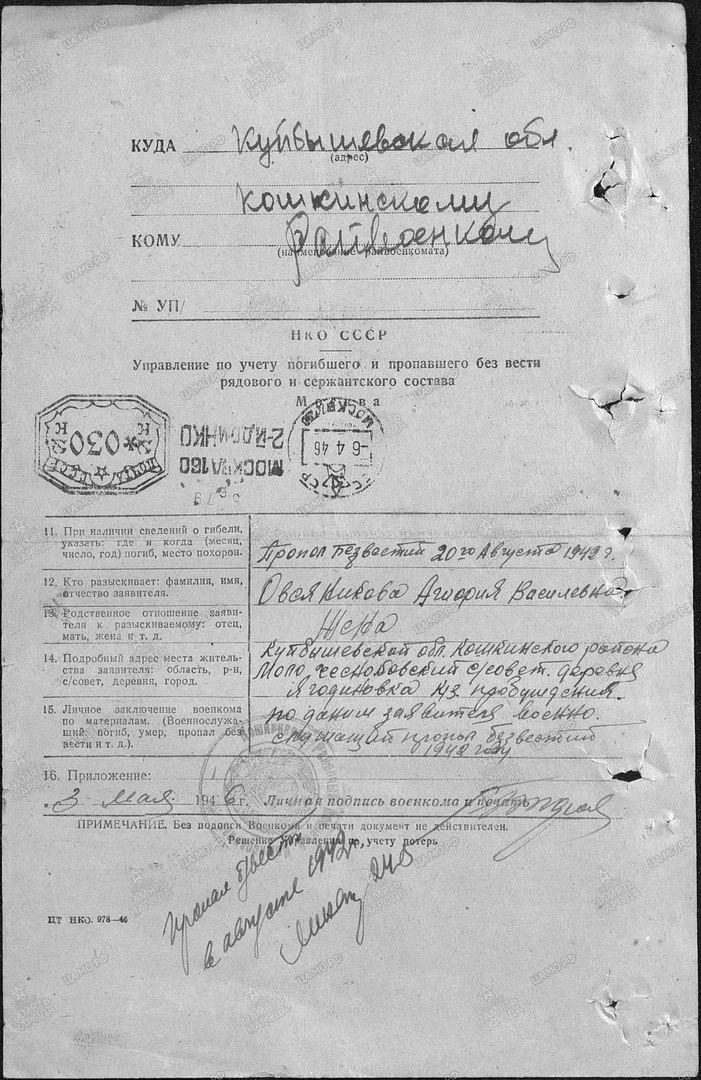 КУДА Куйбышевская обл.
(адрес)
Кошкинскому
КОМУ Райвоенкому
(наименование райвоенкомата)
№ УП/
НКО СССР
Управление по учету погибшего и пропавшего без вести
рядового и сержантского состава
Москва
ПОЧТА СССР
К 030 К
МОСКВА 160
2-Й ДОМ НКО
МОСКВА
-6 4 46
11. При наличии сведений о гибели,
указать: где и когда (месяц,
число, год) погиб, место похорон.
Пропол безвестий 20го Августа 1942 г.
12. Кто разыскивает: фамилия, имя,
отчество заявителя.
Овсяникова Васильевна
13. Родственное отношение заяви-
теля к разыскиваемому: отец,
мать, жена и т. д.
Жена
14. Подробный адрес места житель-
ства заявителя: область, р-н,
с/совет, деревня, город.
Куйбышевской обл. Кошкинского района
с/совет. деревня
Ягодиновка к/з. пробуждения.
15. Личное заключение военкома
по материалам. (Военнослужа-
щий погиб, умер, пропал без
вести и т. д.).
по даним заявителя военно.
служащий пропол безвестий
1942 году
16. Приложение:
„ 3 мая 1946 г. Личная подпись военкома и печать
ПРИМЕЧАНИЕ. Без подписи Военкома и печати документ не действителен.
Решение Управления по учету потерь
пропал б/вести
в августе 1942
ЦТ НКО. 978—46